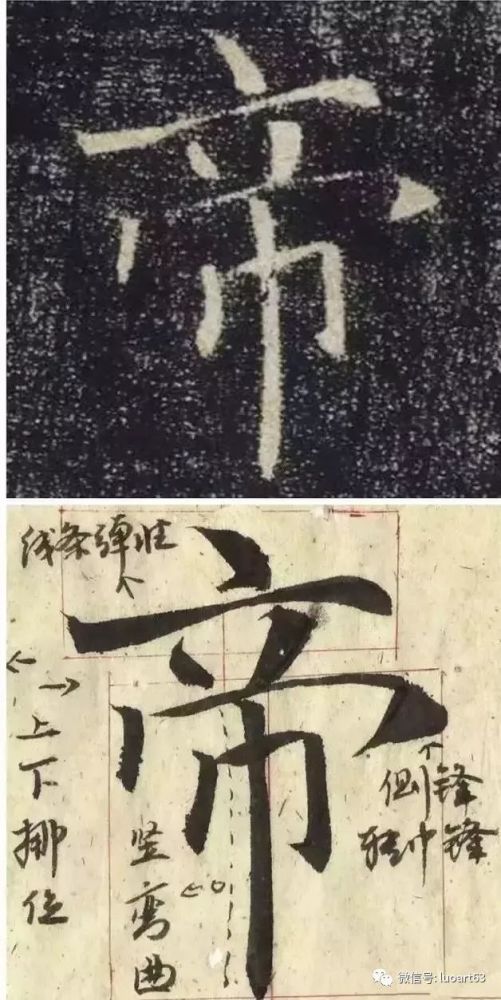 帝
线条弹性
帝
上下挪位
竖弯曲
侧锋
转中锋
微信号: luoart63